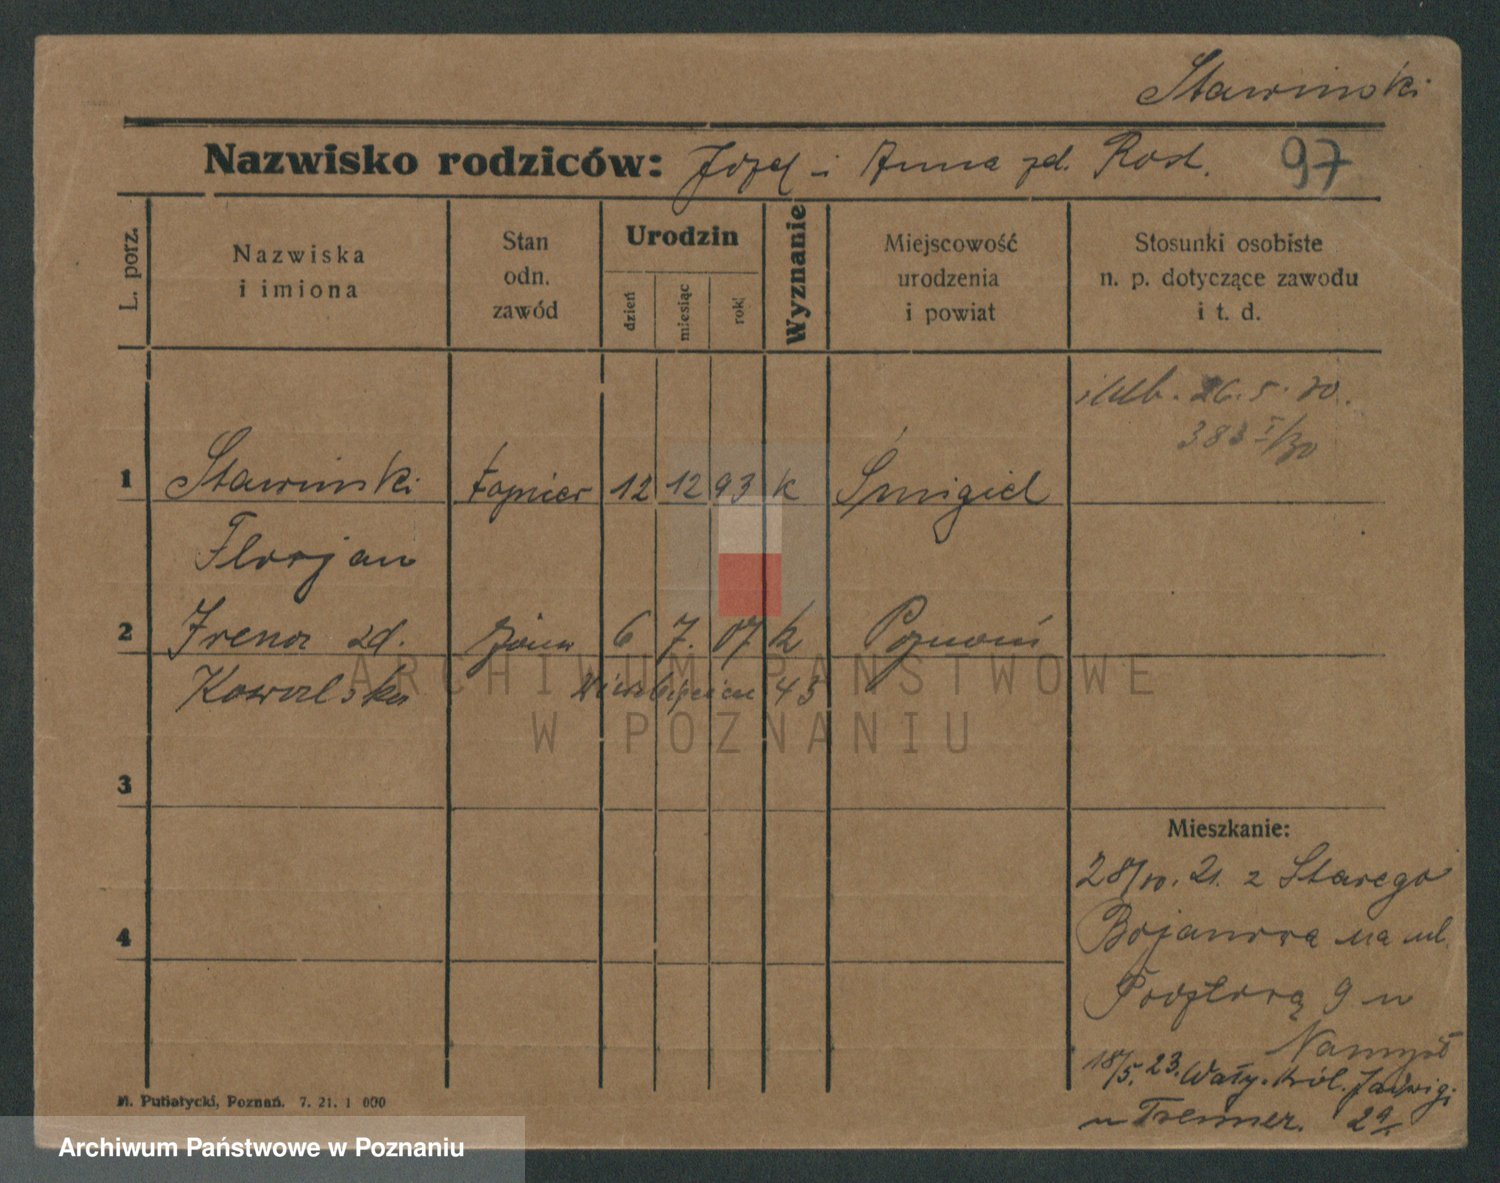 Stawinski
Nazwisko rodziców: Józef i Anna zd. Rost. 97
L. porz.
Nazwiska
i imiona
Stan
odn.
zawód
Urodzin
dzień
miesiąc
rok
Wyznanie
Miejscowość
urodzenia
i powiat
Stosunki osobiste
n. p. dotyczące zawodu
i t. d.
26.5.30.
383 I/30
1 Stawinski 12 12 93 k Śmigiel
Florjan
2 Irena zd. żona 6 7. 07 k Poznań
Kowalska 43
3
4
Mieszkanie:
21. z Starego
Bojanowa na ul.
9 u
18/5. 23. Wały Król. Jadwigi
u Tremmer. 2a
M. Putiatycki, Poznań. 7. 21. 1 000
ARCHIWUM PAŃSTWOWE
W POZNANIU
Archiwum Państwowe w Poznaniu